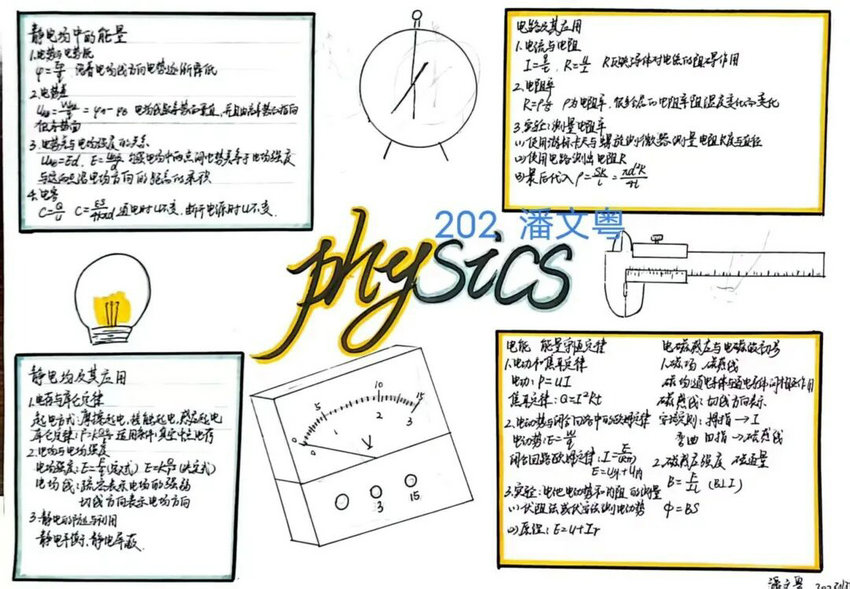 静电场中的能量
1.电势与电势能
φ=Ep/q 沿着电场线方向电势逐渐降低
2.电势差
UAB=WAB/q=φA-φB 电场线跟等势面垂直,并且由高等势面指向
低等势面
3.电势差与电场强度的关系
UAB=Ed, E=UAB/d 匀强电场中两点间电势差等于电场强度
与这两点沿电场方向的距离的乘积
4.电容
C=Q/U C=εS/4πkd 通电时U不变,断开电源时
电路及其应用
1.电流与电阻
I=q/t, R=U/I R反映导体对电流的阻碍作用
2.电阻率
R=ρl/S ρ为电阻率,
3.实验:测量电阻率
(1)使用游标卡尺与螺旋测微器测量电阻长度与直径
(2)使用电路测出电阻R
(3)最后代入ρ=SR/L=πd²R/4L
202 潘文粤
physics
静电场及其应用
1.电荷与库仑定律
起电方式:摩擦起电,接触起电,感应起电
库仑定律: 适用条件:真空中点电荷
2.电场与电场强度
电场强度:E=F/q(定义式) E=kQ/r²(决定式)
电场线:疏密表示电场的强弱
切线方向表示电场方向
3.静电的防止与利用
静电平衡,静电屏蔽.
0 5 10 15
0 1 2 3
V
3 15
电能 能量守恒定律
1.电功和焦耳定律
电功:P=UI
焦耳定律:Q=I²Rt
2.电动势与闭合回路中的欧姆定律
电动势:E=W/q
闭合回路欧姆定律:I=E/(R+r)
E=U外+U内
3.实验:电池电动势和内阻的测量
(1)伏阻法或伏安法测电动势
(2)原理:E=U+Ir
电磁感应与电磁波初步
1.磁场 磁感线
磁场:通电导体与通电导体间相互作用
磁感线:切线方向表示
安培定则:拇指→I
弯曲四指→磁感线
2.磁感应强度 磁通量
B=F/IL (B⊥I)
Φ=BS
潘文粤